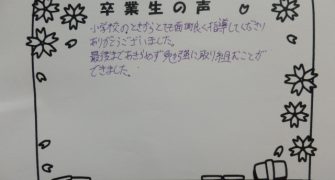 卒業生の声
小学校のときからとても面倒良く指導してくださり
ありがとうございました。
最後まであきらめず勉強に取り組むことが
できました。